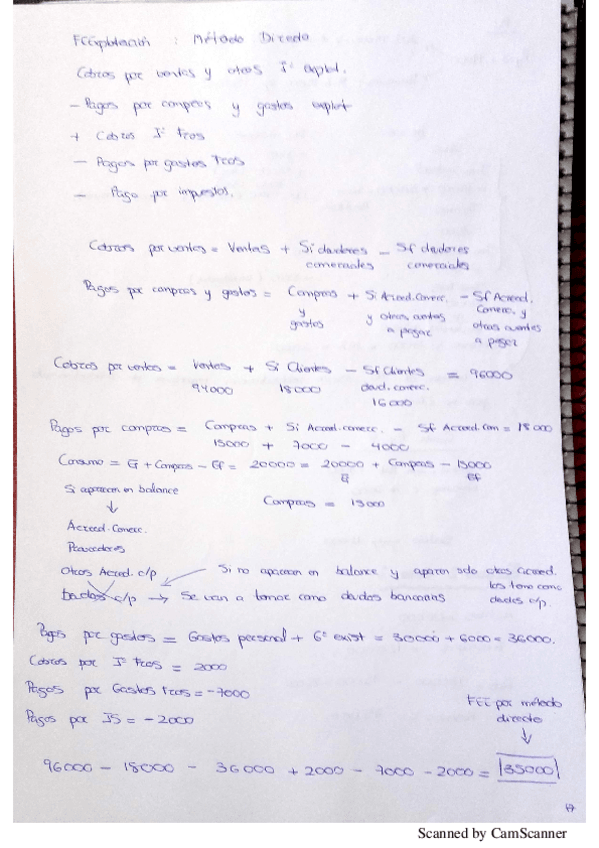 FCExplotación : Método Directo
Cobros por ventas y otros Iº explot.
- Pagos por compras y gastos explot
+ Cobros Iº Fros
- Pagos por gastos Fros
- Pago por impuestos.
Cobros por ventas = Ventas + Si deudores comerciales - Sf deudores comerciales
Pagos por compras y gastos = Compras y gastos + Si Acreed. Comerc. y otras cuentas a pagar - Sf Acreed. Comerc. y otras cuentas a pagar
Cobros por ventas = Ventas + Si Clientes - Sf Clientes = 96000
94000 18000 deud. comerc.
16000
Pagos por compras = Compras + Si Acreed. comerc. - Sf Acreed. Com = 18000
15000 + 7000 - 4000
Consumo = Ei + Compras - Ef = 20000 = 20000 + Compras - 15000
Ei Ef
Si aparecen en balance
Compras = 15000
Acreed. Comerc.
Proveedores
Otros Acreed. c/p Si no aparecen en balance y aparece solo otros acreed. los tomo como deudas c/p.
Deudas c/p → Se van a tomar como deudas bancarias
Pagos por gastos = Gastos personal + Gº exist = 30000 + 6000 = 36000.
Cobros por Iº Fros = 2000
Pagos por Gastos Fros = -7000
Pagos por IS = -2000
FCE por método directo
↓
96000 - 18000 - 36000 + 2000 - 7000 - 2000 = 35000
17
Scanned by CamScanner